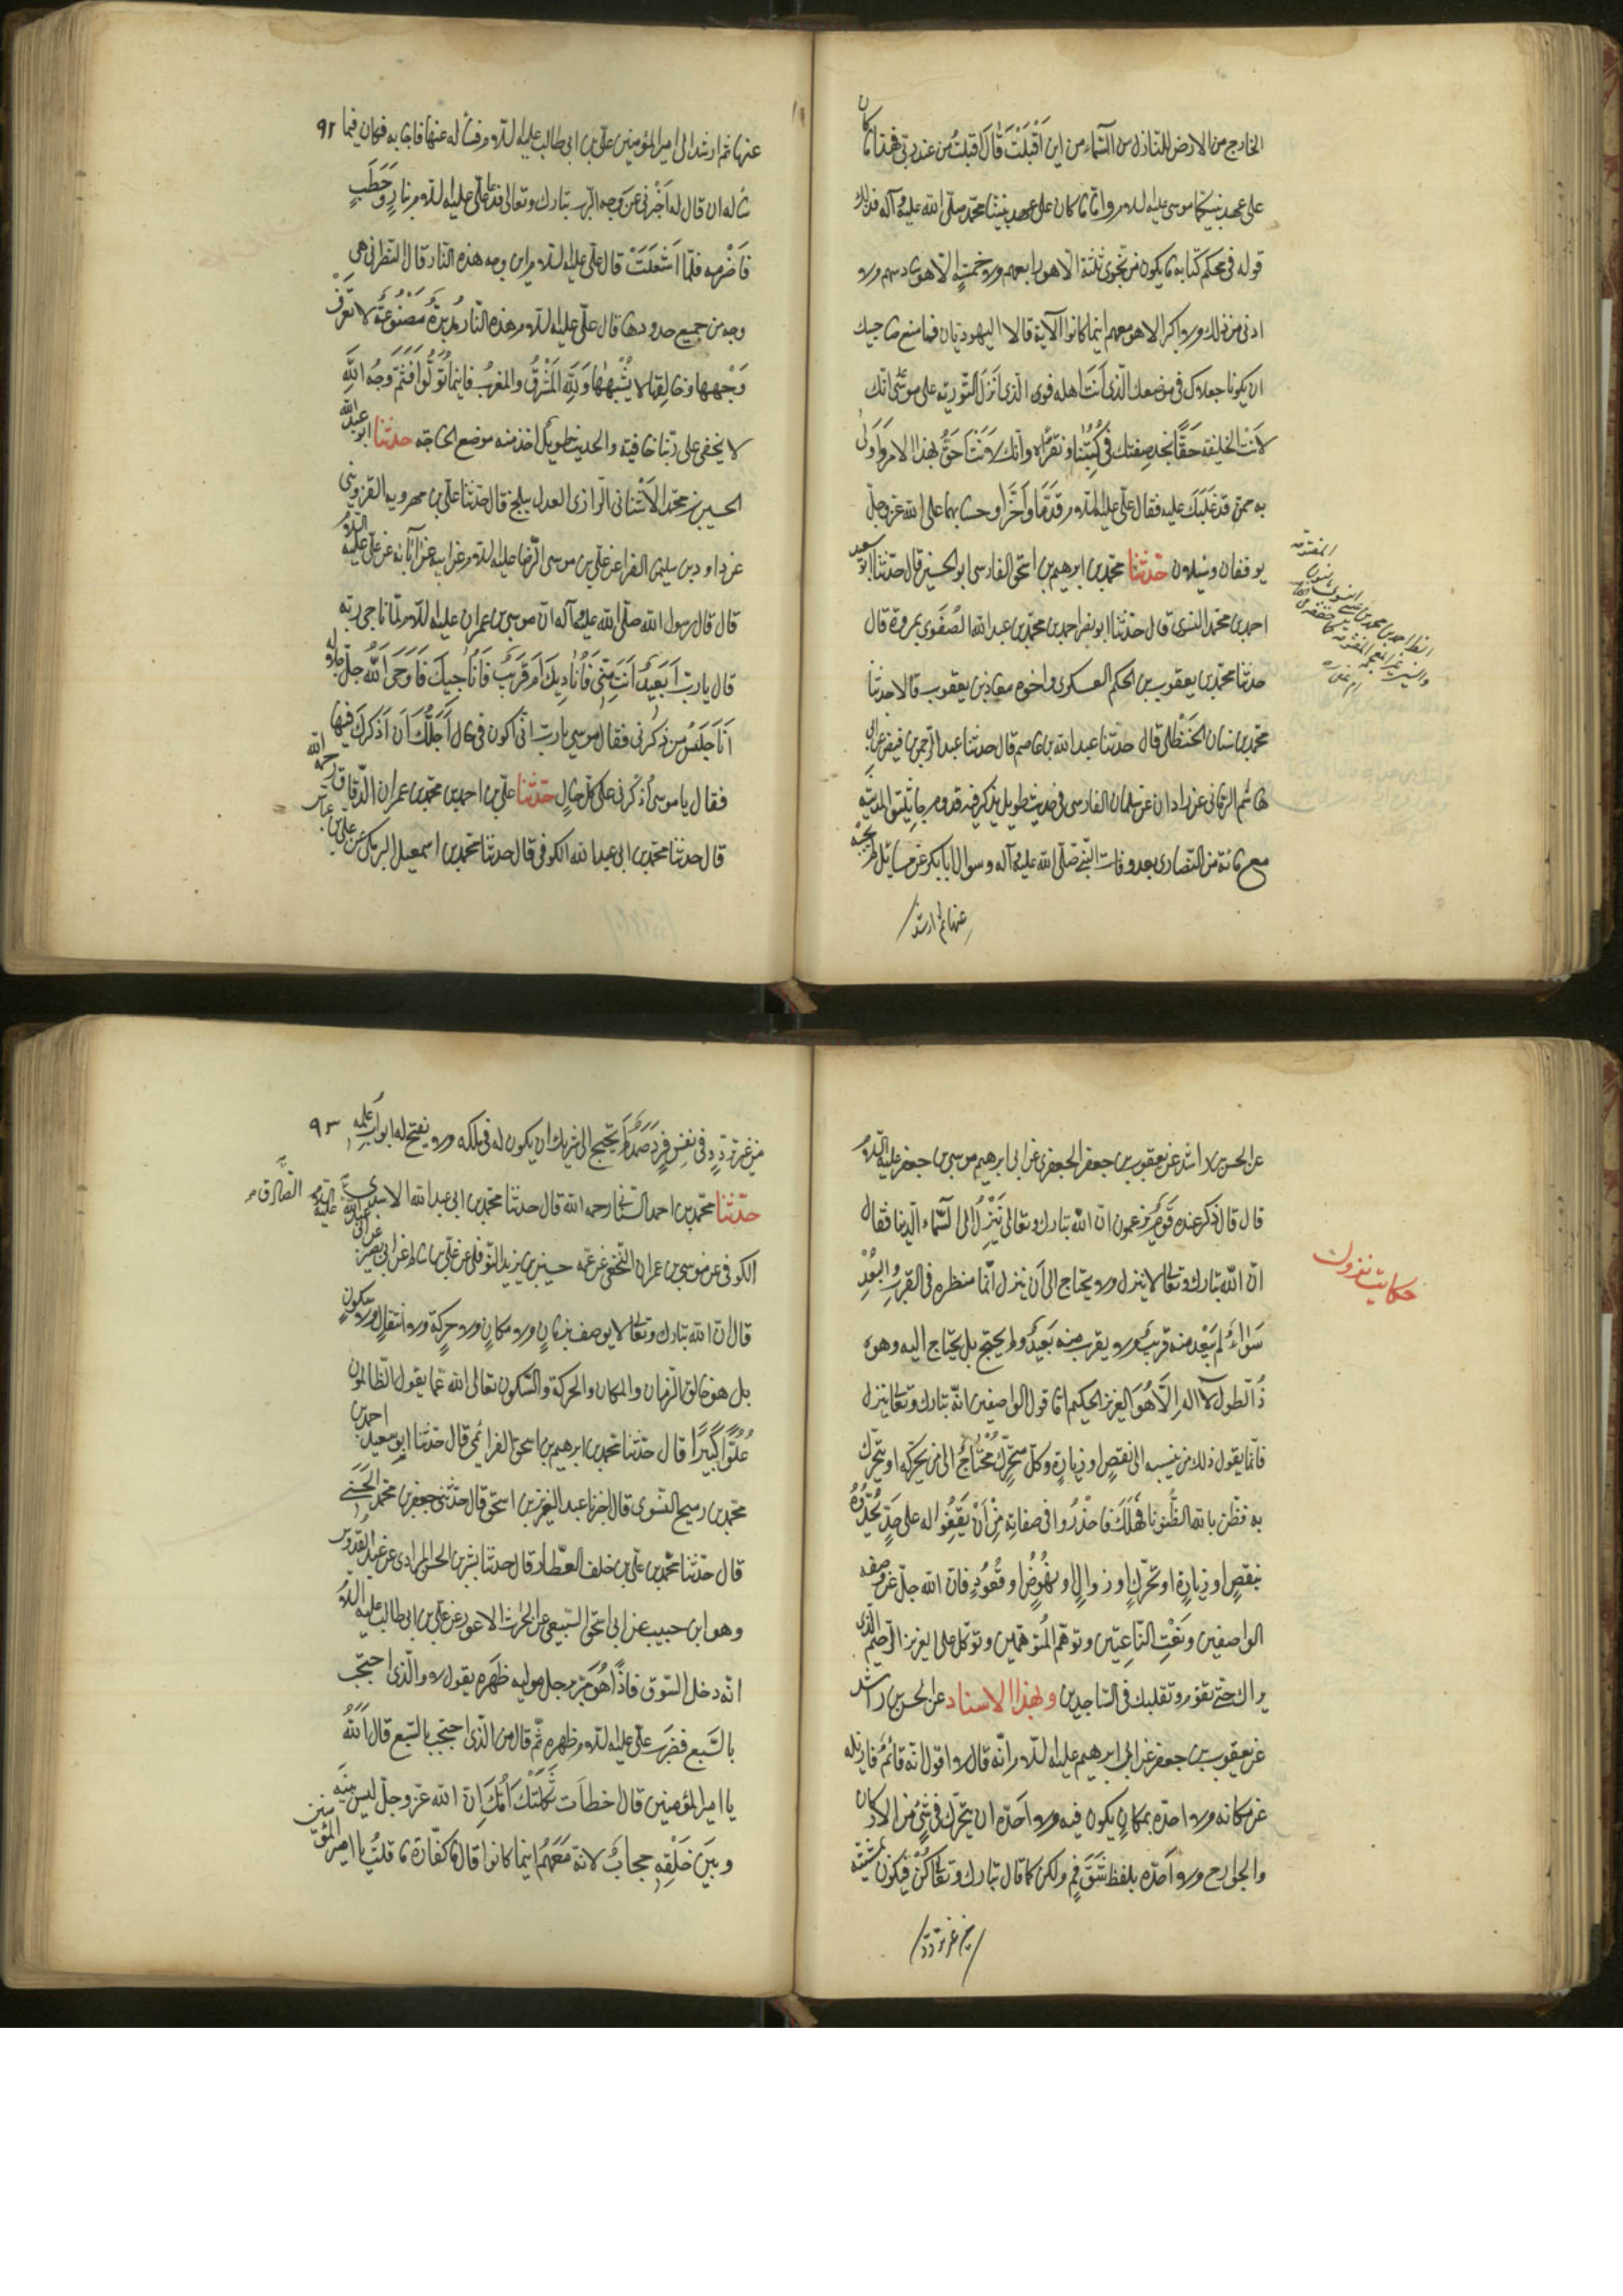 الخارج من الارض للنازل من السماء من اين اقبلت قال اقبلت من عند ربى فهذا ما كان
على عهد نبيكما موسى عليه السلام واما ما كان على عهد نبينا محمد صلى الله عليه وآله فذلك
قوله فى محكم كتابه ما يكون من نجوى ثلثة الا هو رابعهم ولا خمسة الا هو سادسهم ولا
ادنى من ذلك ولا اكثر الا هو معهم اينما كانوا الآية قالا اليهوديان فما منع صاحبيك
ان يكونا جعلاك فى موضعك الذى انت اهله فوى الذى انزل التورية على موسى انك
لانت الخليفة حقا نجد صفتك فى كتبنا ونقرأه وانك لانت احق بهذا الامر واولى
به ممن قد غلبك عليه فقال على عليه السلام قدما واخرا وحسابهما على الله عز وجل
يوقفان ويسئلان حدثنا محمد بن ابرهيم بن اسحق الفارسى ابو الحسين قال حدثنا ابو سعيد
احمد بن محمد النسوى قال حدثنا ابو نصر احمد بن محمد بن عبد الله الصغوى بمروة قال
حدثنا محمد بن يعقوب بن الحكم العسكرى واخوه معاذ بن يعقوب قالا حدثنا
محمد بن سنان الحنظلى قال حدثنا عبد الله بن عاصم قال حدثنا عبد الرحمن بن قيس عن ابى
هاشم الرمانى عن زادان عن سلمان الفارسى فى حديث طويل يذكر فيه قدوم جاثليق المدينة
مع مائة من النصارى بعد وفات النبى صلى الله عليه وآله وسؤال ابا بكر عن مسائل لم يجبه
عنها ثم ارشد
عنها ثم ارشد الى امير المؤمنين على بن ابى طالب عليه السلام فسأله عنها فاجابه فكان فيما ٩٢
سأله ان قال له اخبرنى عن وجه الرب تبارك وتعالى فدعا على عليه السلام بنار وحطب
فاضرمه فلما اشتعلت قال على عليه السلام اين وجه هذه النار قال النصرانى هى
وجه من جميع حدودها قال على عليه السلام هذه النار مدبرة مصنوعة لا تعرف
وجهها وخالقها لا يشبهها ولله المشرق والمغرب فاينما تولوا فثم وجه الله
لا يخفى على ربنا خافية والحديث طويل اخذ منه موضع الحاجة حدثنا ابو عبد الله
الحسين بن محمد الاشنانى الرازى العدل ببلخ قال حدثنا على بن مهرويه القزوينى
عن داود بن سليمن الفرا عن على بن موسى الرضا عليه السلام عن ابيه عن آبائه عن على عليه السلام
قال قال رسول الله صلى الله عليه وآله ان موسى بن عمران عليه السلام لما ناجى ربه
قال يا رب ابعيد انت منى فاناديك ام قريب فاناجيك فاوحى الله جل جلاله
انا جليس من ذكرنى فقال موسى يا رب انى اكون فى حال اجلك ان اذكرك فيها
فقال يا موسى اذكرنى على كل حال حدثنا على بن احمد بن محمد بن عمران الدقاق رحمه الله
قال حدثنا محمد بن ابى عبد الله الكوفى قال حدثنا محمد بن اسمعيل البرمكى عن على بن عباس
حكايت نزول
عن الحسن بن راشد عن يعقوب بن جعفر الجعفرى عن ابى ابرهيم موسى بن جعفر عليه السلام
قال قال ذكر عنده قوم يزعمون ان الله تبارك وتعالى ينزل الى السماء الدنيا فقال
ان الله تبارك وتعالى لا ينزل ولا يحتاج الى ان ينزل انما منظره فى القرب والبعد
سواء لم يبعد منه قريب ولا يقرب منه بعيد ولم يحتج بل يحتاج اليه وهو
ذو الطول لا اله الا هو العزيز الحكيم اما قول الواصفين انه تبارك وتعالى ينزل
فانما يقول ذلك من ينسبه الى نقص او زيادة وكل متحرك محتاج الى من يحركه او يتحرك
به فظن بالله الظنون فهلك فاحذروا فى صفاته من ان تقفوا له على حد تحدوه
بنقص او زيادة او تحرك او زوال او نهوض او قعود فان الله جل عن صفة
الواصفين ونعت الناعتين وتوهم المتوهمين وتوكل على العزيز الرحيم الذى
يراك حين تقوم وتقلبك فى الساجدين وبهذا الاسناد عن الحسن بن راشد
عن يعقوب بن جعفر عن ابى ابرهيم عليه السلام انه قال لا اقول انه قائم فازيله
عن مكانه ولا احده بمكان يكون فيه ولا احده ان يتحرك فى شئ من الاركان
والجوارح ولا احده بلفظ شق فم ولكن كما قال تبارك وتعالى كن فيكون بمشيته
من غير تردد
من غير تردد فى نفس فرد صمد لم يحتج الى شريك ان يكون له فى ملكه ولا يفتح له ابواب علمه ٩٣
حدثنا محمد بن احمد السنانى رحمه الله قال حدثنا محمد بن ابى عبد الله الاسدى
الكوفى عن موسى بن عمران النخعى عن عمه حسين بن يزيد النوفلى عن على بن سالم عن ابى بصير عن ابى عبد الله الصادق عليه السلام
قال ان الله تبارك وتعالى لا يوصف بزمان ولا مكان ولا حركة ولا انتقال ولا سكون
بل هو خالق الزمان والمكان والحركة والسكون تعالى الله عما يقول الظالمون
علوا كبيرا قال حدثنا محمد بن ابرهيم بن اسحق العزائمى قال حدثنا ابو سعيد احمد بن
محمد بن رميح النسوى قال اخبرنا عبد العزيز بن اسحق قال حدثنى جعفر بن محمد الحسنى
قال حدثنا محمد بن على بن خلف العطار قال حدثنا بشر بن الحسن المرادى عن عبد القدوس
وهو ابن حبيب عن ابى اسحق السبيعى عن الحرث الاعور عن على بن ابى طالب عليه السلام
انه دخل السوق فاذا هو برجل موليه ظهره يقول لا والذى احتجب
بالسبع فضرب على عليه السلام ظهره ثم قال من الذى احتجب بالسبع قال الله
يا امير المؤمنين قال اخطات ثكلتك امك ان الله عز وجل ليس بينه
وبين خلقه حجاب لانه معهم اينما كانوا قال ما كفارة ما قلت يا امير المؤمنين